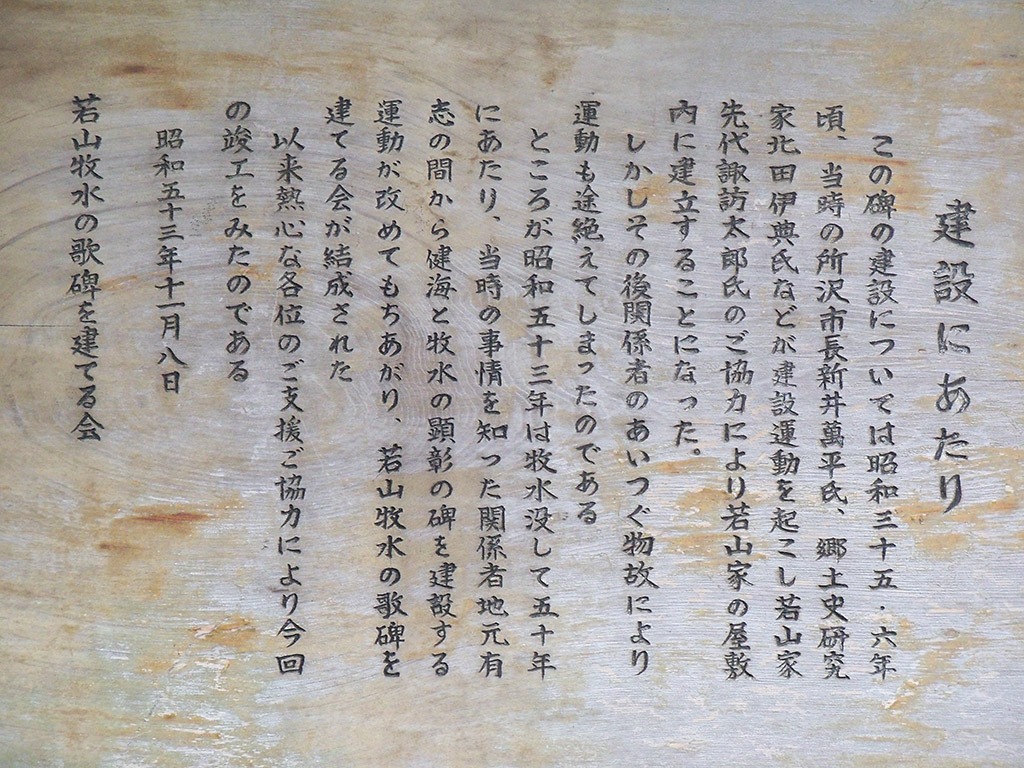 建設にあたり
この碑の建設については昭和三十五．六年
頃、当時の所沢市長新井萬平氏、郷土史研究
家北田伊興氏などが建設運動を起こし若山家
先代諏訪太郎氏のご協力により若山家の屋敷
内に建立することになった。
しかしその後関係者のあいつぐ物故により
運動も途絶えてしまったのである
ところが昭和五十三年は牧水没して五十年
にあたり、当時の事情を知った関係者地元有
志の間から健海と牧水の顕彰の碑を建設する
運動が改めてもちあがり、若山牧水の歌碑を
建てる会が結成された
以来熱心な各位のご支援ご協力により今回
の竣工をみたのである
昭和五十三年十一月八日
若山牧水の歌碑を建てる会